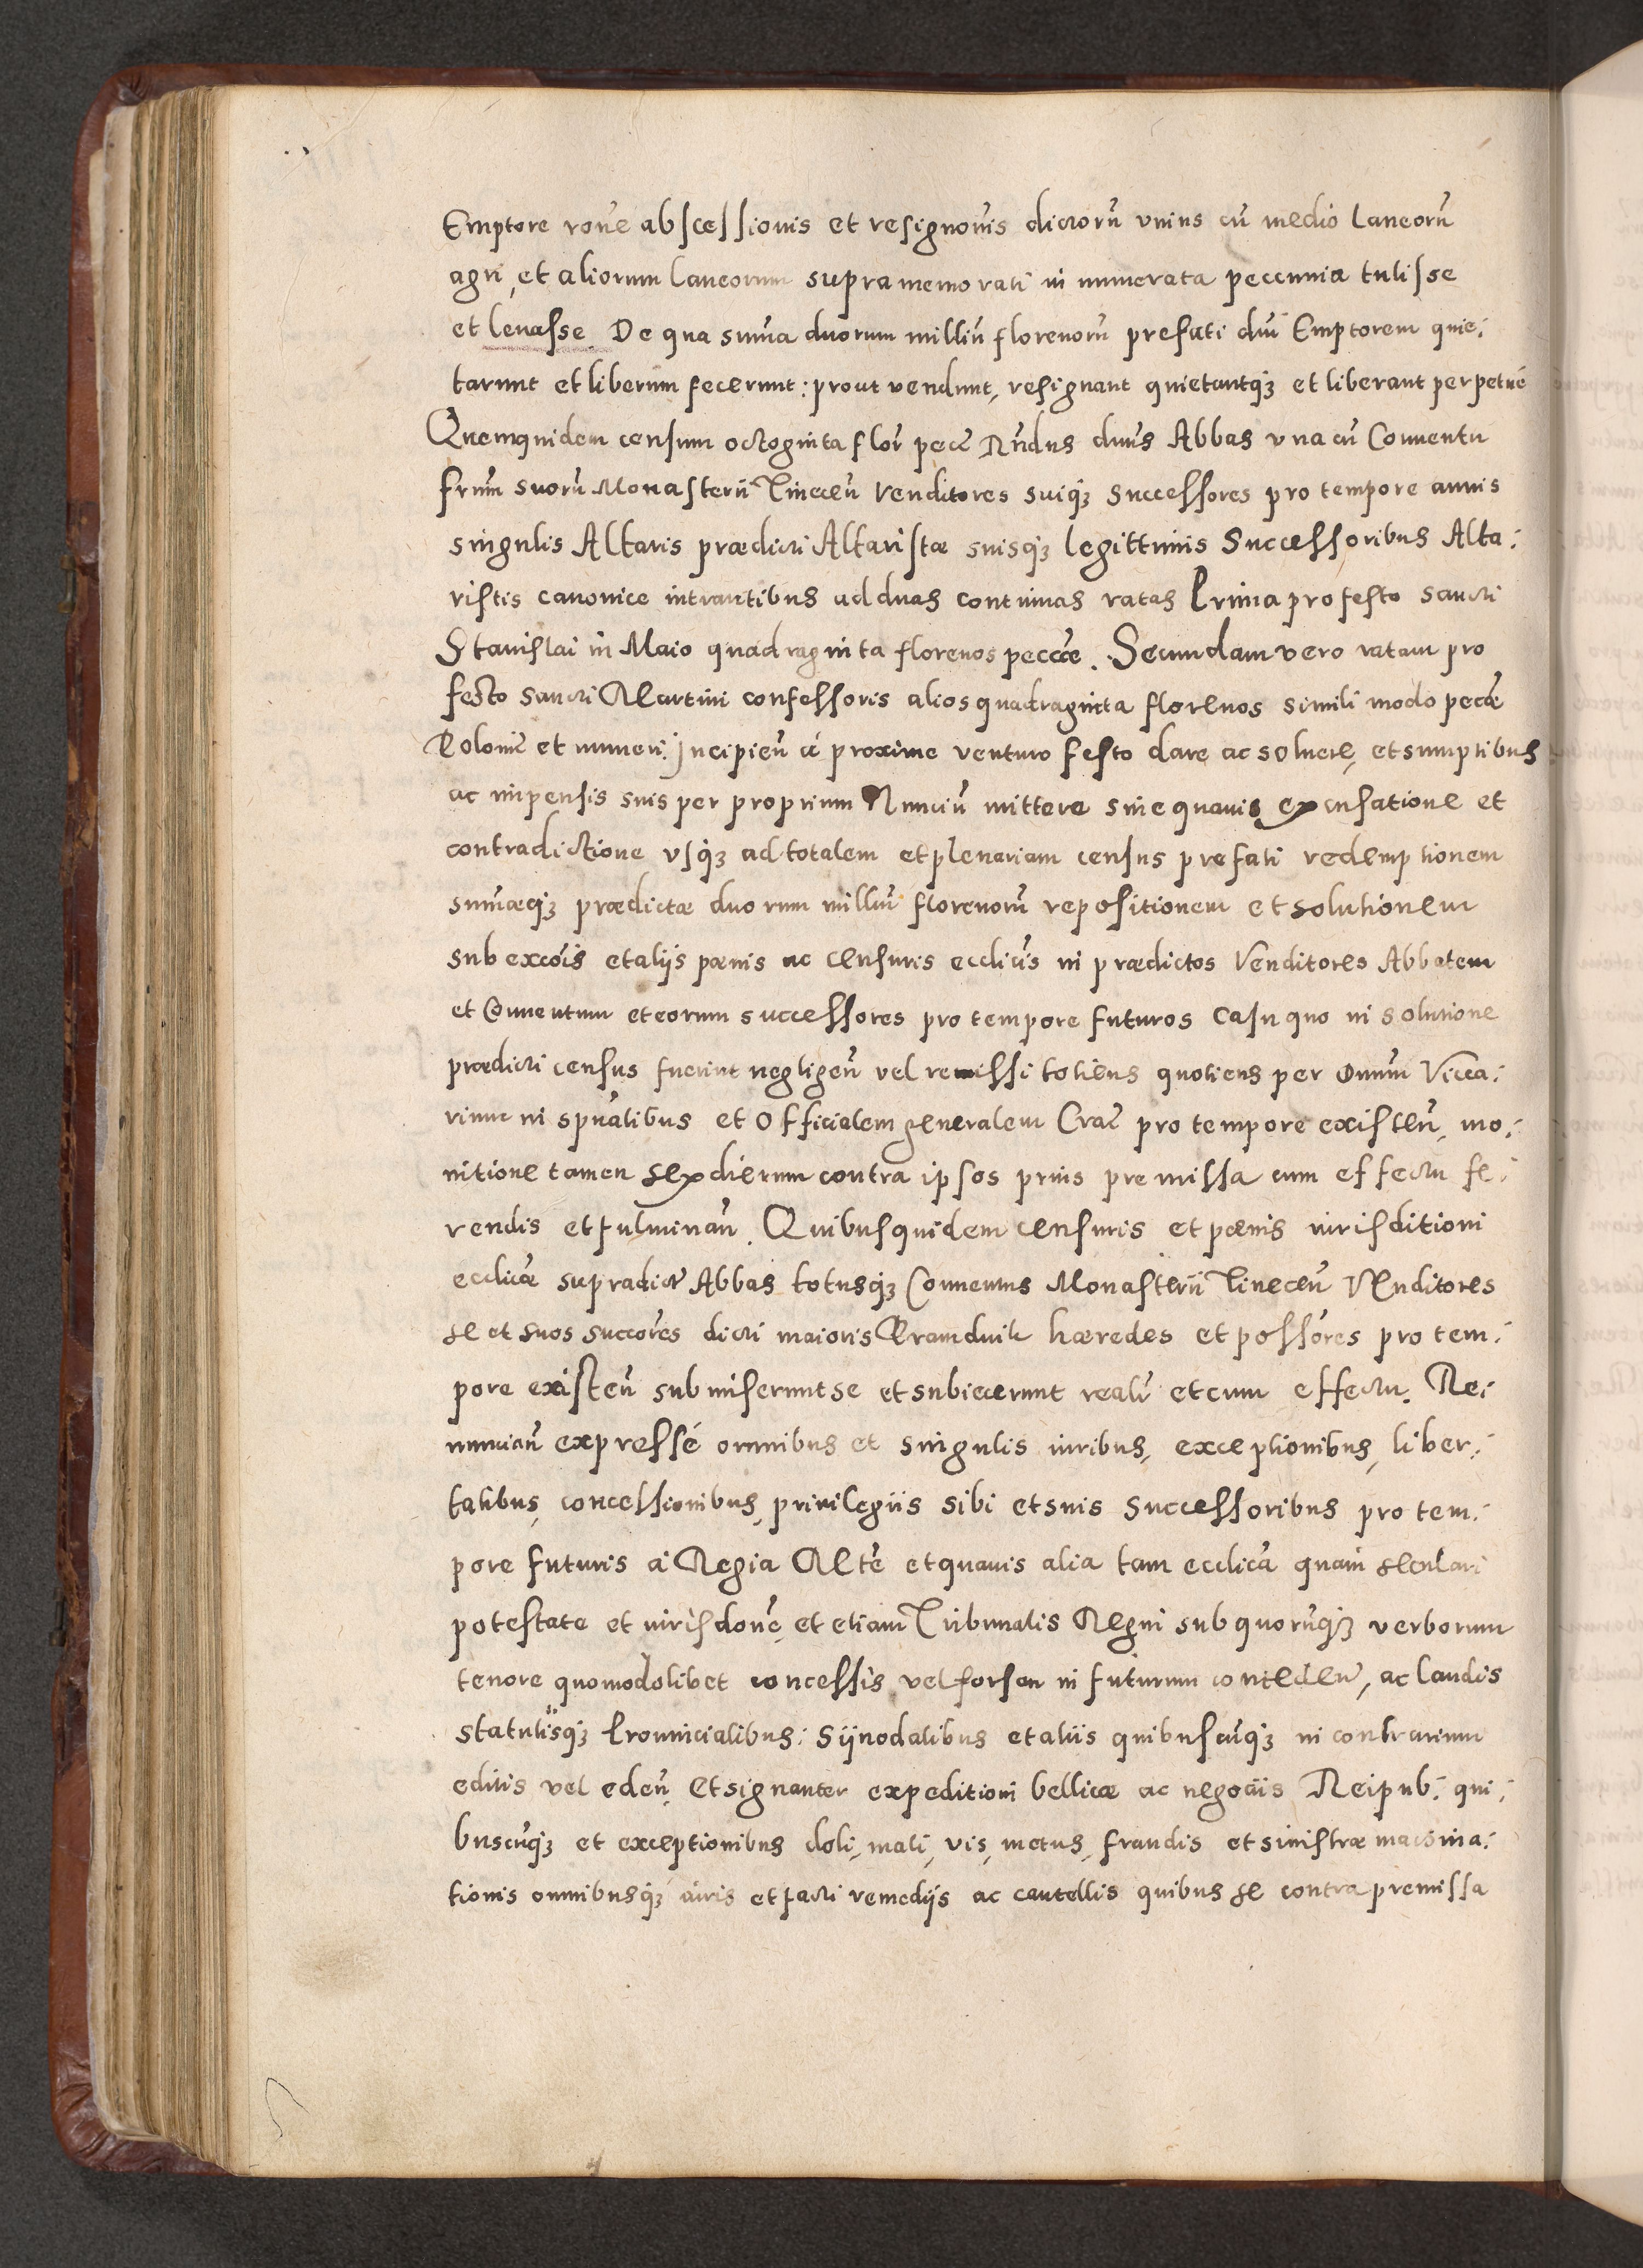 Emptore rone abscessionis et resignonis dictoru unius cu medio laneoru
agri, et aliorum laneorum supra memorati in numerata peccunia tulisse
et levasse. De qua suma duorum milliu florenoru prefati dni Emptorem quie:
tarunt et liberum fecerunt: prout vendunt, resignant quietantq3 et liberant perpetue
Quemquidem censum octoginta flor pecc Rndus dnus Abbas una cu Conventu
frum suoru Monasterii Tinecen Venditores suiq3 Successores pro tempore annis
singulis Altaris prædicti Altaristæ suisq3 legittimis Successoribus Alta:
ristis canonice intrantibus ad duas continuas ratas Prima pro festo Sancti
Stanislai in Maio quadraginta florenos peccæ. Secundam vero ratam pro
festo Sancti Martini confessoris alios quadraginta florenos simili modo peccæ
Poloniæ et numeri. Incipien á proxime venturo festo dare ac solvere, et sumptibus
ac impensis suis per proprium Nunciu mittere sine quavis excusatione et
contradictione usq3 ad totalem et plenariam census prefati redemptionem
sumæq3 prædictæ duorum milliu florenoru repositionem et solutionem
sub excois et aliis pœnis ac censuris ecclicis in prædictos Venditores Abbatem
et Conventum et eorum successores pro tempore futuros casu quo in solutione
prædicti census fuerint negligen vel remissi totiens quotiens per Dnum Vicea:
rium in spualibus et Officialem generalem Crac pro tempore existen, mo:
nitione tamen sex dierum contra ipsos prius premissa cum effectu fe:
rendis et fulminan. Quibusquidem censuris et pœnis iurisditioni
ecclicæ supradict Abbas totusq3 Conventus Monasterii Tinecen Venditores
se et suos succores dicti maioris Prandnik hæredes et possores pro tem:
pore existen submiserunt se et subiecerunt realr et cum effectu. Re:
nuncian expressé omnibus et singulis iuribus, exceptionibus, liber:
tatibus, concessionibus, privilegiis sibi et suis Successoribus pro tem:
pore futuris á Regia Mte et quavis alia tam ecclica quam seculari
potestate et iurisdone, et etiam Tribunalis Regni sub quorucq3 verborum
tenore quomodolibet concessis vel forsan in futurum conceden, ac laudis
statutisq3 Provincialibus: Sÿnodalibus et aliis quibuscuq3 in contrarium
editis vel eden, Et signanter expeditioni bellicæ ac negociis Reipub: qui:
buscuq3 et exceptionibus doli, mali, vis, metus, fraudis et sinistræ machina:
tionis omnibusq3 iuris et facti remediis ac cautellis quibus se contra premissa